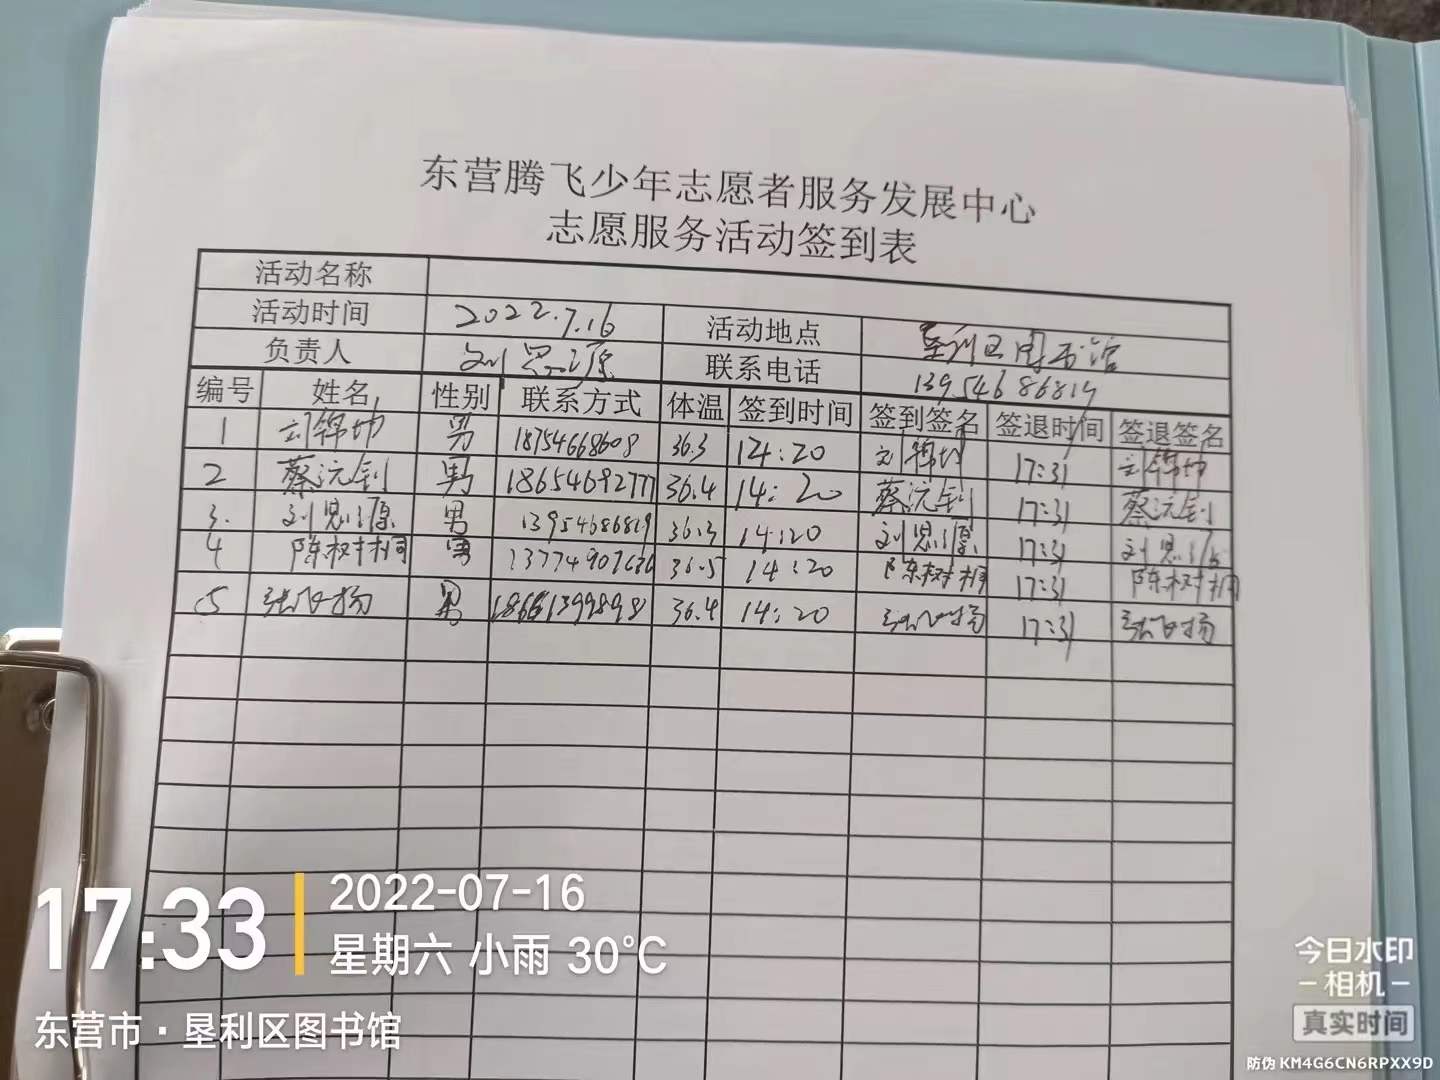 东营腾飞少年志愿者服务发展中心
志愿服务活动签到表
活动名称
活动时间 2022.7.16 活动地点 垦利区图书馆
负责人 刘思源 联系电话 13954686819
编号 姓名 性别 联系方式 体温 签到时间 签到签名 签退时间 签退签名
1 刘锦坤 男 18754668608 36.3 14:20 刘锦坤 17:31 刘锦坤
2 蔡沅钊 男 18654692777 36.4 14:20 蔡沅钊 17:31 蔡沅钊
3. 刘思源 男 13954686819 36.3 14:20 刘思源 17:31 刘思源
4 陈树桐 男 36.5 14:20 陈树桐 17:31 陈树桐
5 张飞扬 男 18661399898 36.4 14:20 张飞扬 17:31 张飞扬
17:33
2022-07-16
星期六 小雨 30°C
东营市·垦利区图书馆
今日水印
-相机-
真实时间
防伪 KM4G6CN6RPXX9D